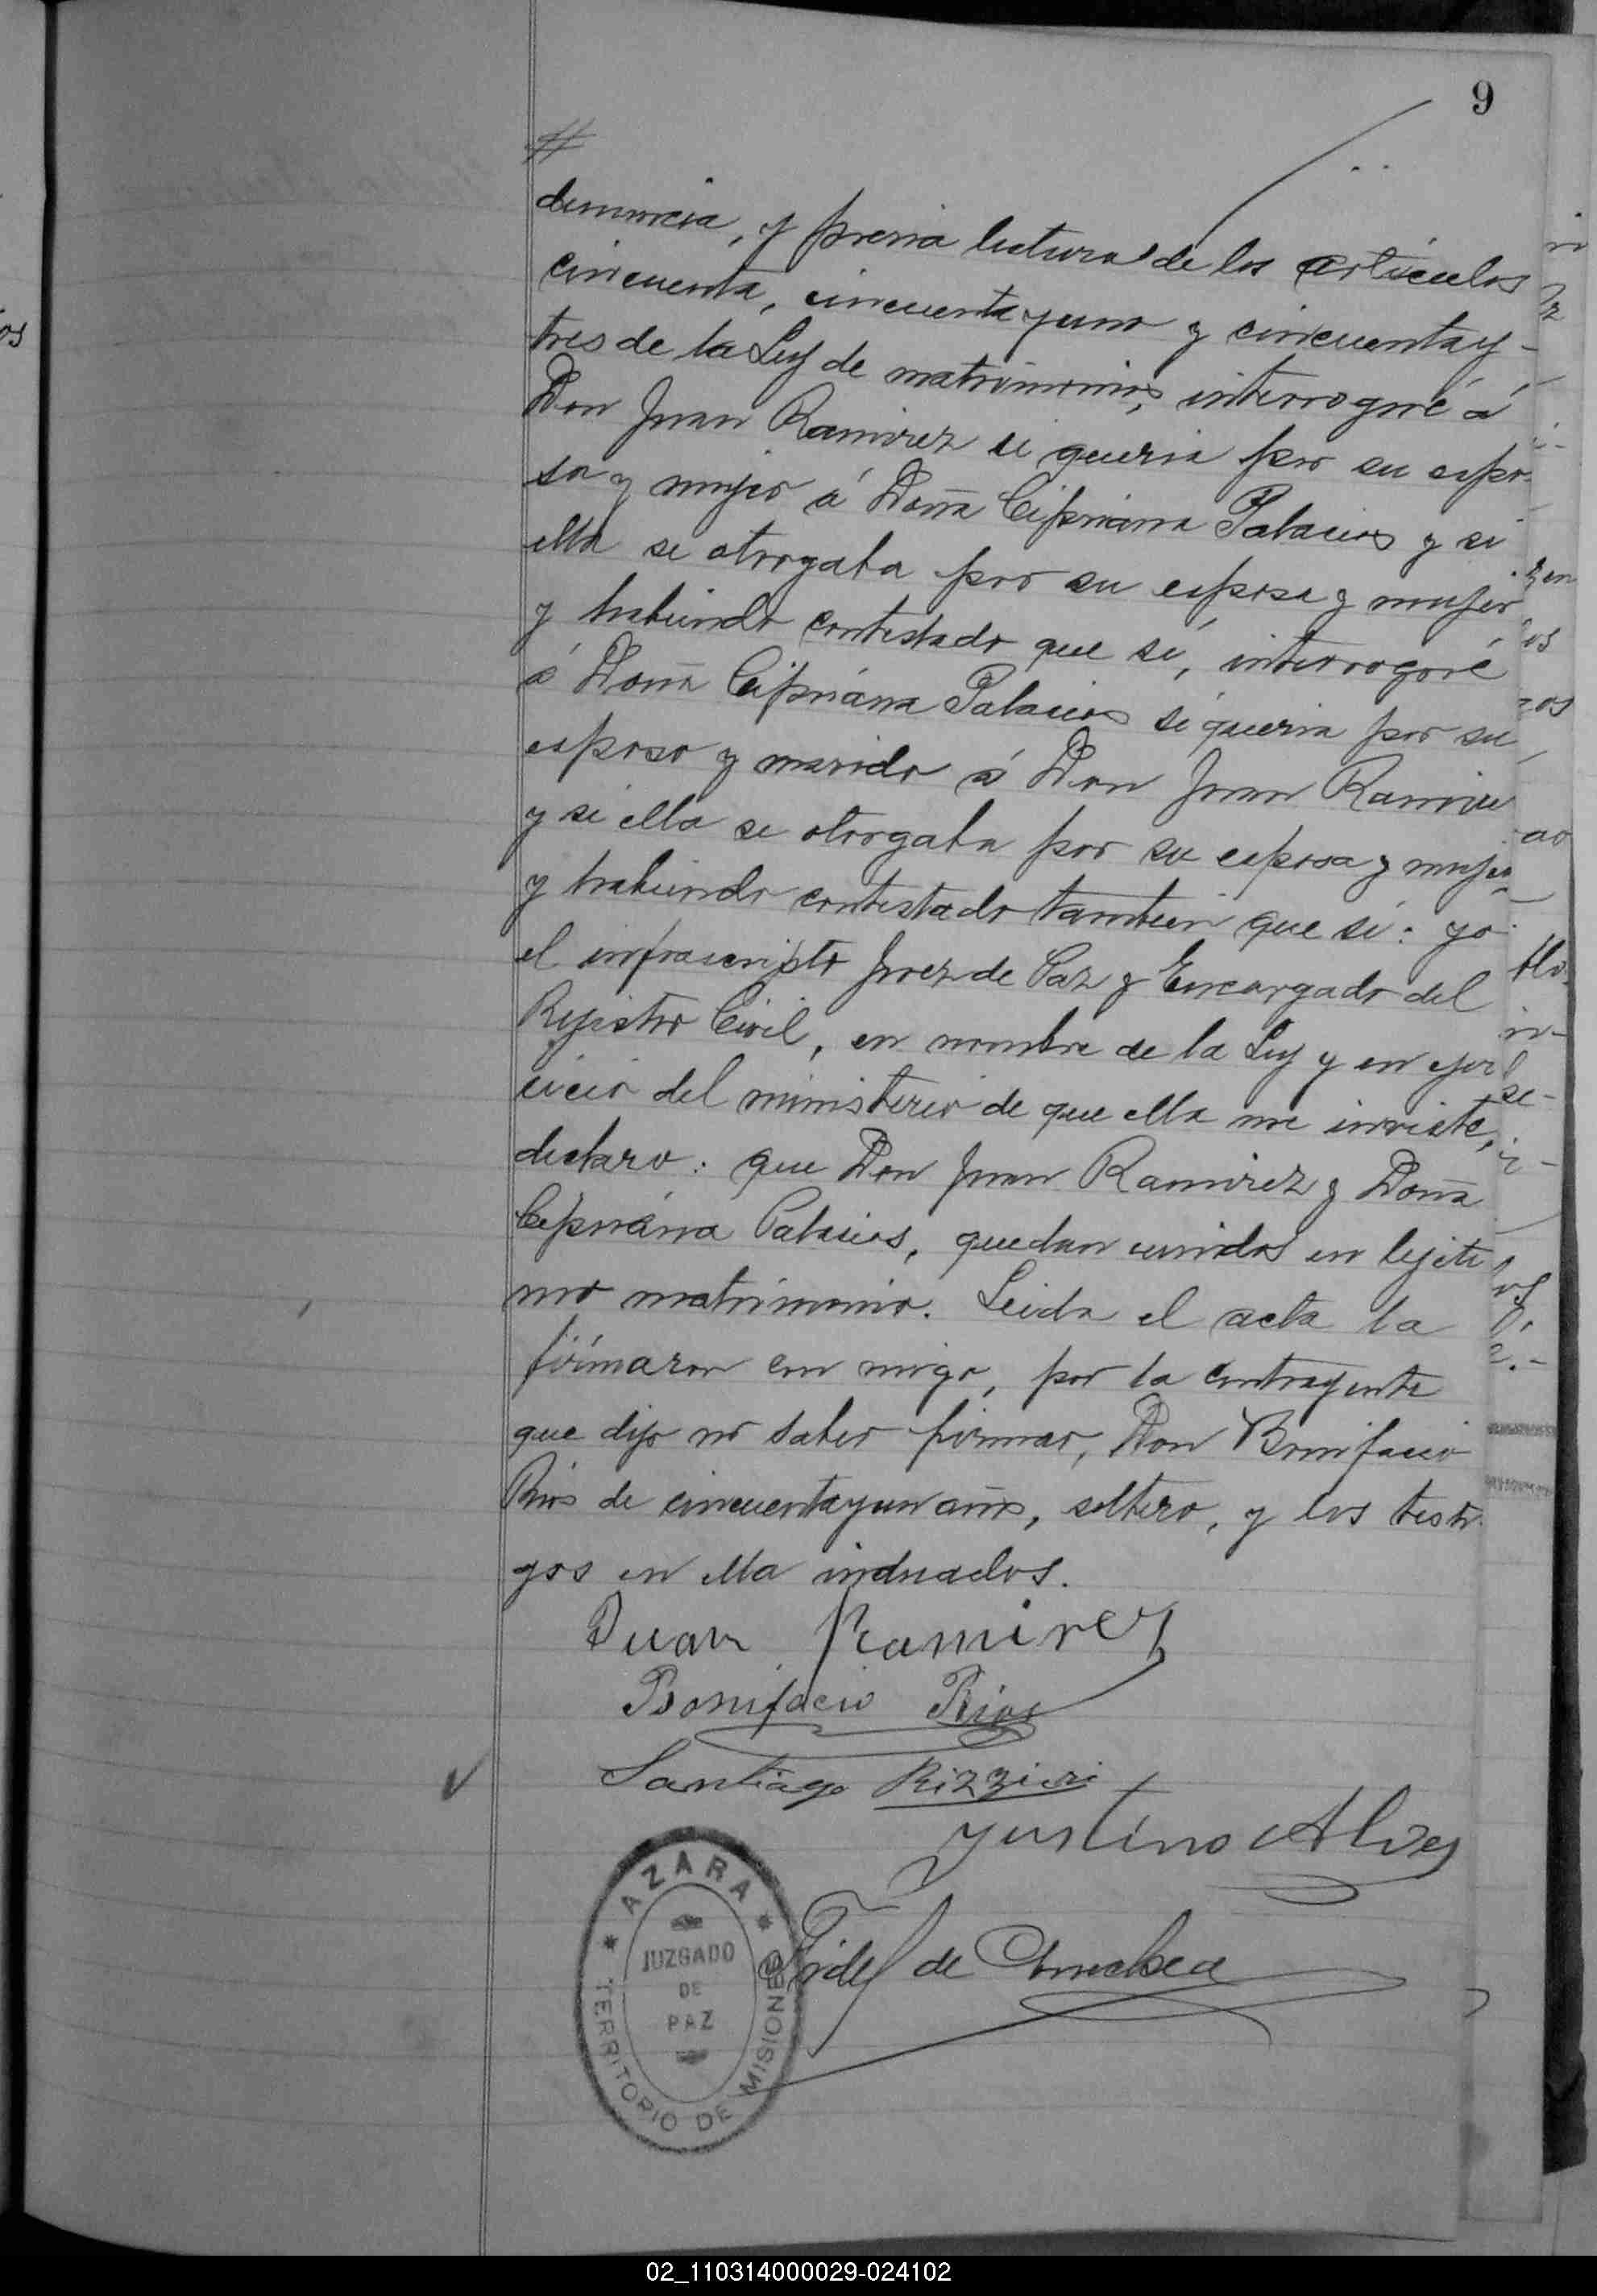 9
#
denuncia, y previa lectura de los artículos
cincuenta, cincuenta y uno y cincuenta y
tres de la Ley de matrimonio, interrogué á
Don Juan Ramirez si queria por su espo-
sa y mujer á Doña Cipriána Palacios y si
ella se otorgaba por su esposa y mujer
y habiendo contestado que sí, interrogué
á Doña Cipriána Palacios si queria por su
esposo y marido á Don Juan Ramirez
y si ella se otorgaba por su esposa y mujer
y habiendo contestado tambien que sí: yo
el infrascripto Juez de Paz y Encargado del
Registro Civil, en nombre de la Ley y en ejer
cicio del ministerio de que ella me inviste,
declaro: que Don Juan Ramirez y Doña
Cipriána Palacios, quedan unidos en lejiti
mo matrimonio. Leida el acta la
firmaron con migo, por la contrayente
que dijo no saber firmar, Don Bonifacio
Rios de cincuenta y un años, soltero, y los testi
gos en ella indicados.
Juan Ramirez
Bonifacio Rios
Santiago Rizzieri
Justino Alves
Fidel de
AZARA
JUZGADO
DE
PAZ
TERRITORIO DE MISIONES
02_110314000029-024102